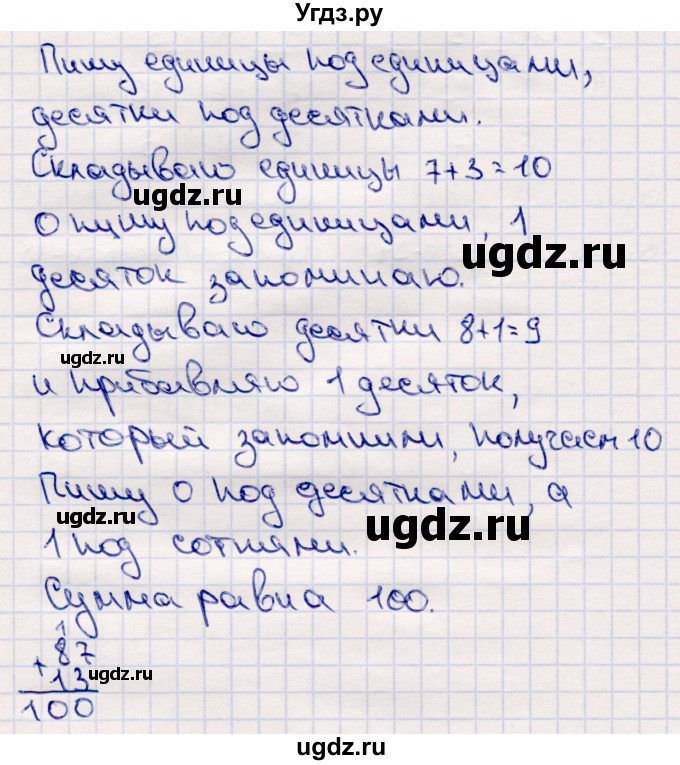 Угдз.ру
Пишу единицы под единицами,
десятки под десятками.
Складываю единицы 7+3=10
ugdz.ru
0 пишу под единицами, 1
ugdz.ru
десяток запоминаю.
Складываю десятки 8+1=9
ugdz.ru
и прибавляю 1 десяток,
который запомнили, получаем 10
Пишу 0 под десятками, а
ugdz.ru
ugdz.ru
1 под сотнями.
Сумма равна 100.
1
87
+13
ugdz.ru
100
ugdz.ru